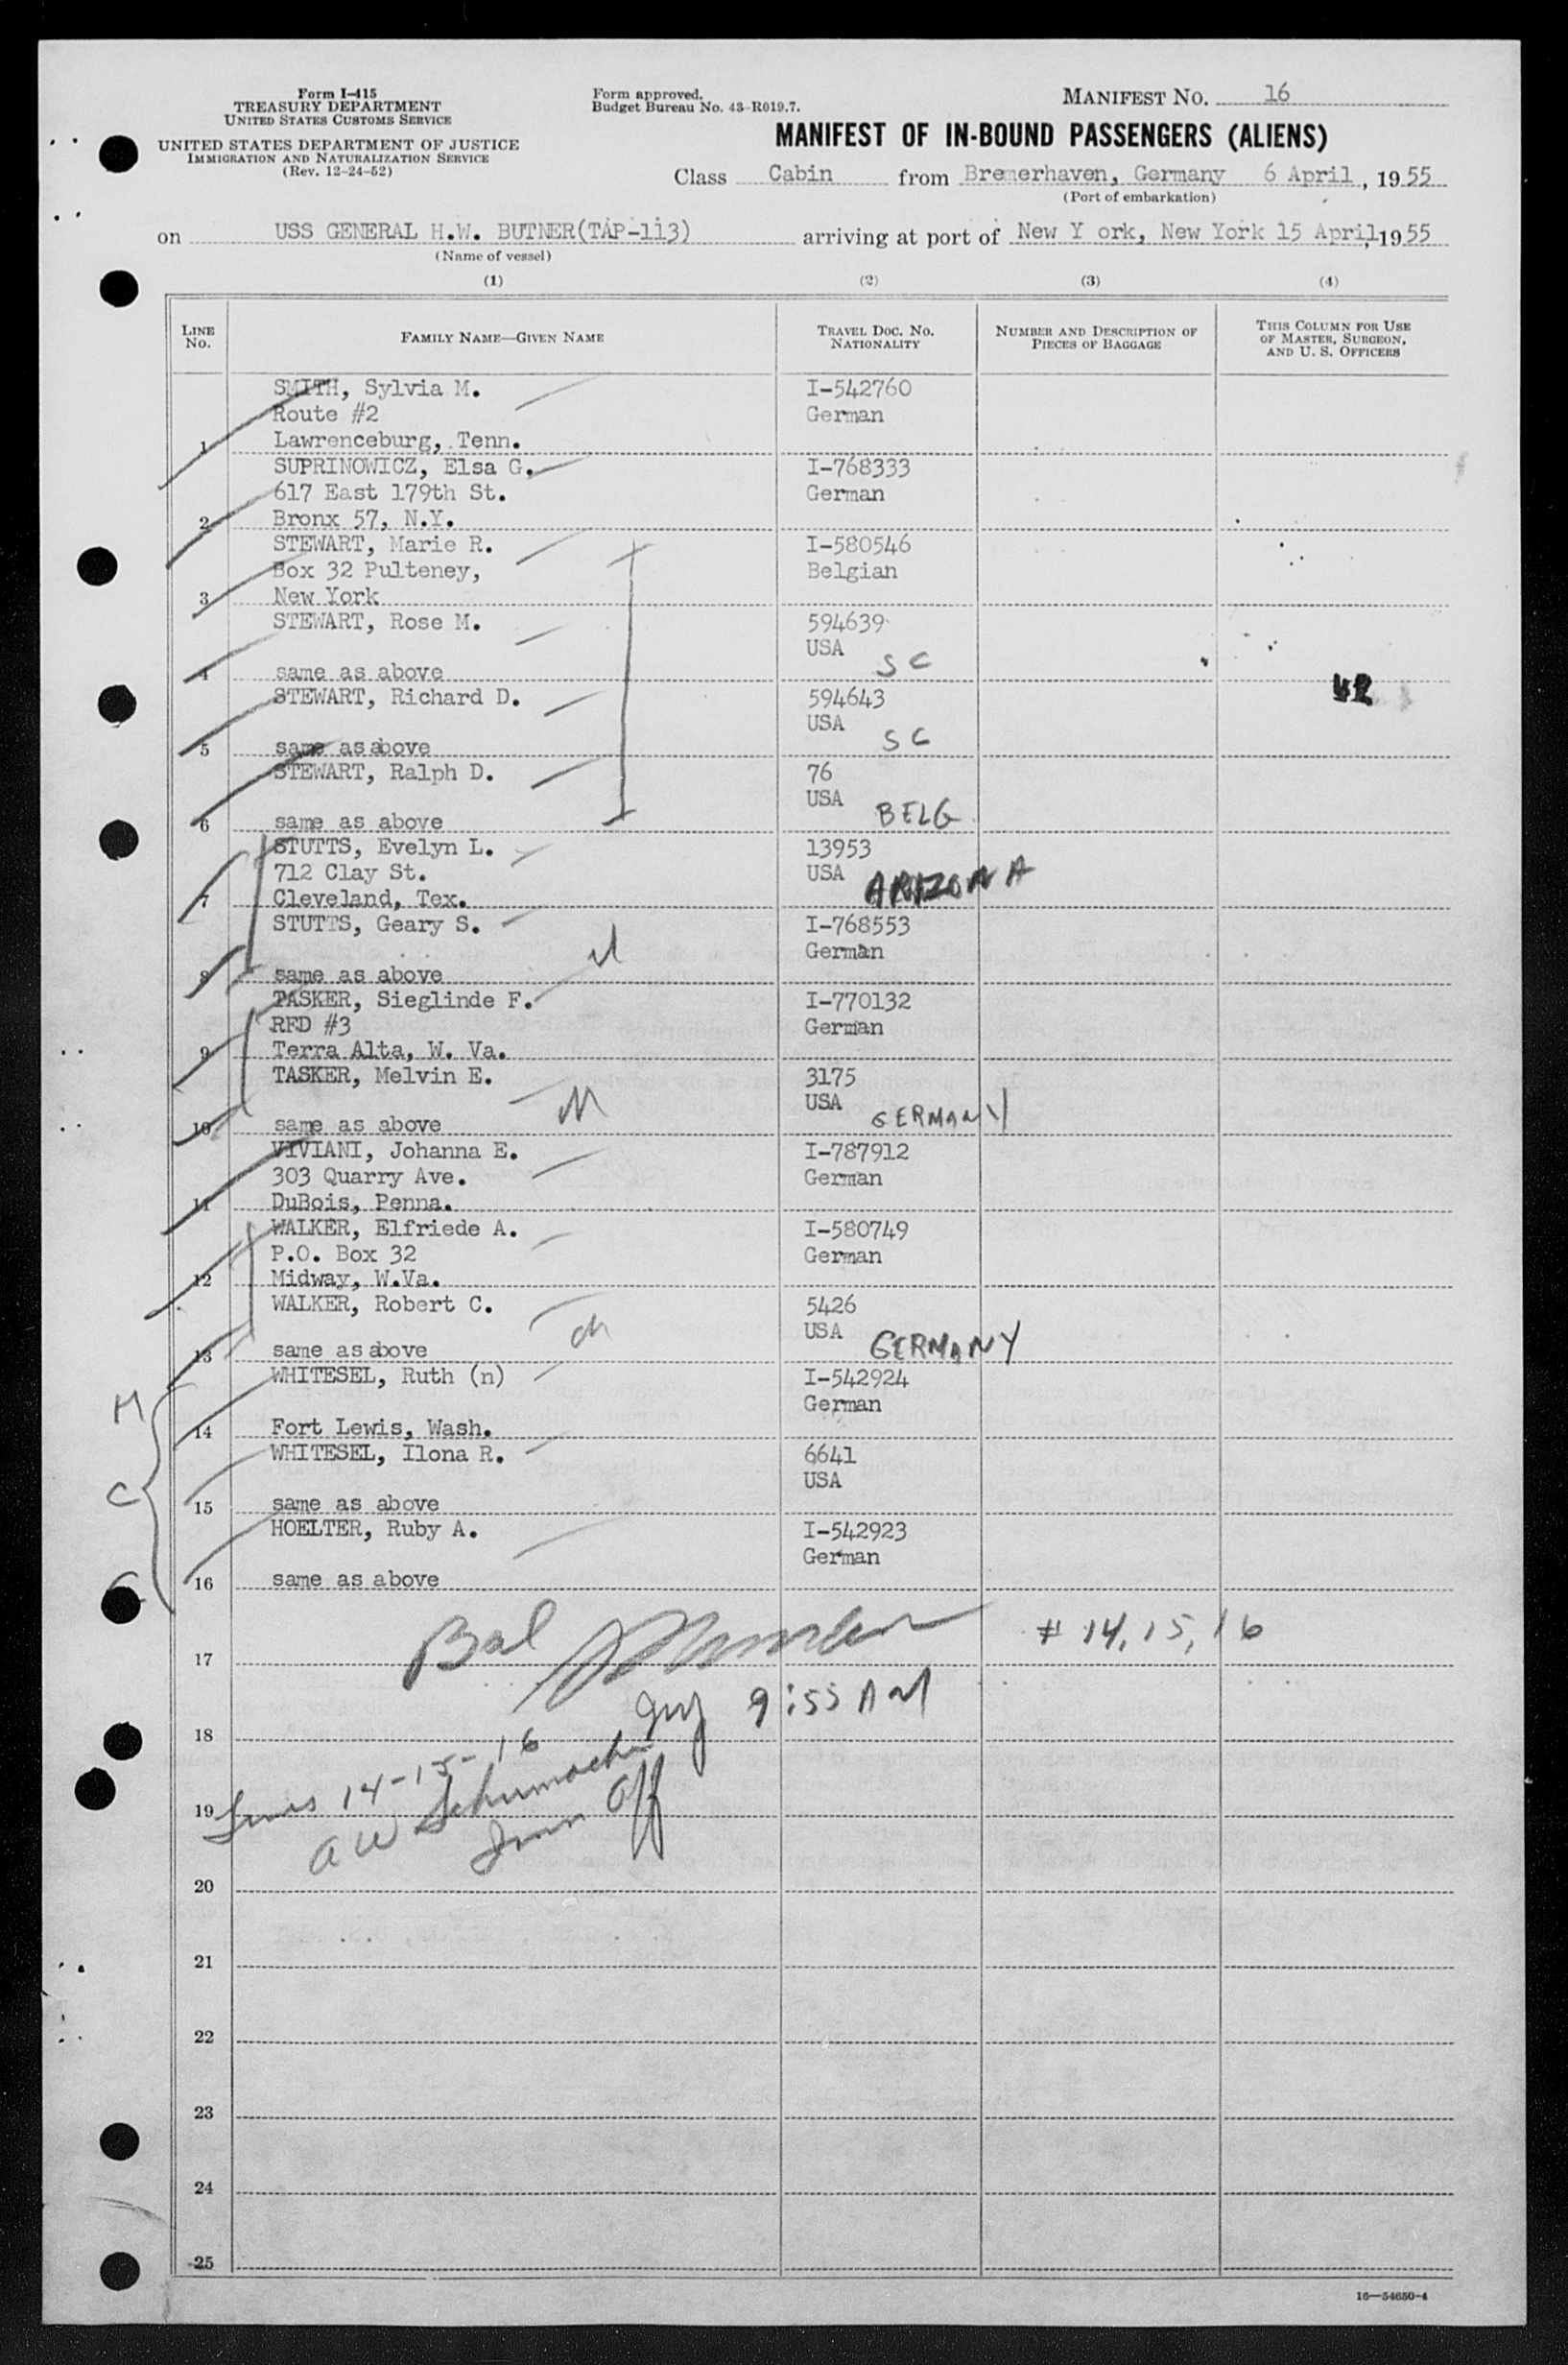 Form I-415
TREASURY DEPARTMENT
UNITED STATES CUSTOMS SERVICE
UNITED STATES DEPARTMENT OF JUSTICE
IMMIGRATION AND NATURALIZATION SERVICE
(Rev. 12-24-52)
Form approved.
Budget Bureau No. 43-R019.7.
MANIFEST NO. 16
MANIFEST OF IN-BOUND PASSENGERS (ALIENS)
Class Cabin from Bremerhaven, Germany 6 April, 1955
(Port of embarkation)
on USS GENERAL H.W. BUTNER(TAP-113) arriving at port of New Y ork, New York 15 April, 1955
(Name of vessel)
(1) (2) (3) (4)
LINE No. FAMILY NAME—GIVEN NAME TRAVEL DOC. NO. NATIONALITY NUMBER AND DESCRIPTION OF PIECES OF BAGGAGE THIS COLUMN FOR USE OF MASTER, SURGEON, AND U. S. OFFICERS
SMITH, Sylvia M. I-542760
Route #2 German
1 Lawrenceburg, Tenn.
SUPRINOWICZ, Elsa G. I-768333
617 East 179th St. German
2 Bronx 57, N.Y.
STEWART, Marie R. I-580546
Box 32 Pulteney, Belgian
3 New York
STEWART, Rose M. 594639
USA
4 same as above SC
STEWART, Richard D. 594643
USA
5 same as above SC
STEWART, Ralph D. 76
USA
6 same as above BELG
STUTTS, Evelyn L. 13953
712 Clay St. USA ARIZONA
7 Cleveland, Tex.
STUTTS, Geary S. I-768553
German
8 same as above
TASKER, Sieglinde F. I-770132
RFD #3 German
9 Terra Alta, W. Va.
TASKER, Melvin E. 3175
M USA GERMANY
10 same as above
VIVIANI, Johanna E. I-787912
303 Quarry Ave. German
11 DuBois, Penna.
WALKER, Elfriede A. I-580749
P.O. Box 32 German
12 Midway, W.Va.
WALKER, Robert C. 5426
USA GERMANY
13 same as above
WHITESEL, Ruth (n) I-542924
M German
14 Fort Lewis, Wash.
WHITESEL, Ilona R. 6641
C USA
15 same as above
HOELTER, Ruby A. I-542923
German
C 16 same as above
17 Bal # 14, 15, 16
18 9:55 AM
Lines 14-15-16
19 A W Schumacher
Imm Off
20
21
22
23
24
25
16—54650-4